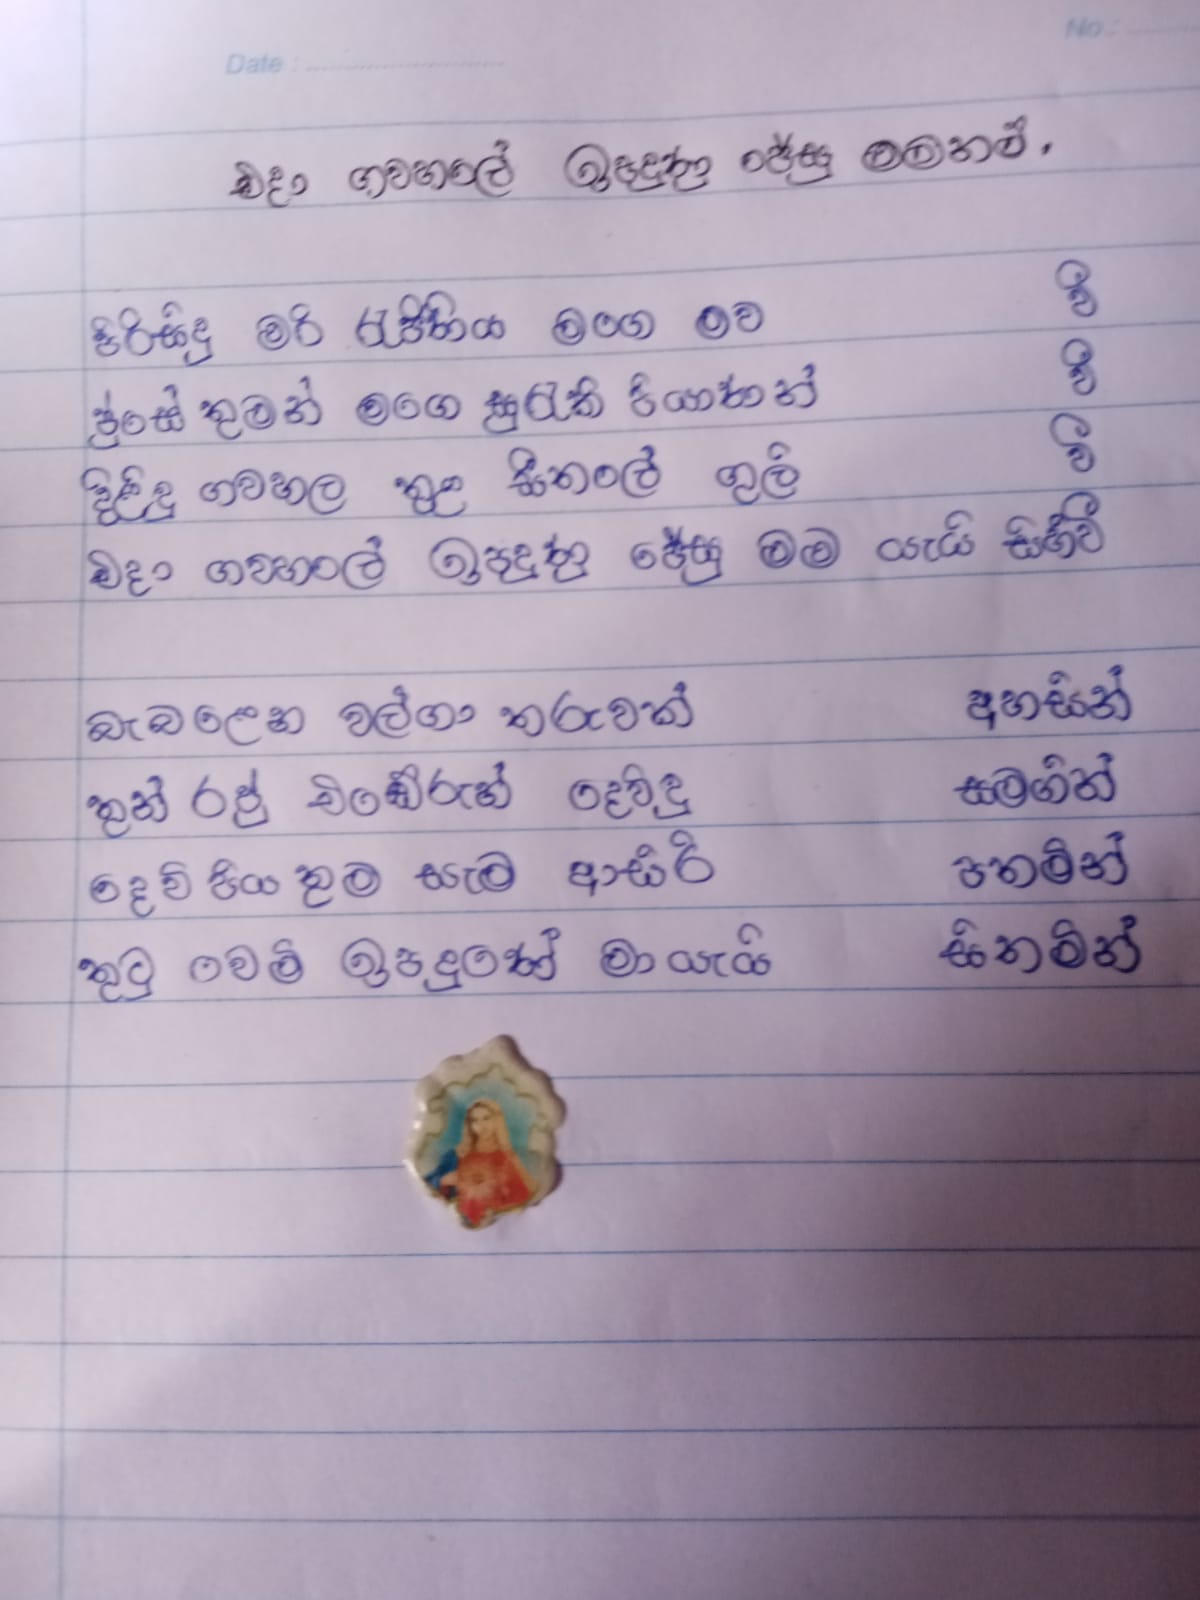 Date : No :
එදා ගවහලේ ඉපදුණු ජේසු මමනම්.
පිරිසිදු මරි රැජිනිය මගෙ මව වී
ජුසේ තුමන් මගෙ සුරැකි පියාණන් වී
දිළිඳු ගවහල තුල සීතලේ ගුලි වී
එදා ගවහලේ ඉපදුණු ජේසු මම යැයි සිහිවී
බැබළෙන වල්ගා තරුවක් අහසින්
තුන් රජු එඬේරුන් දෙවිඳු සමගින්
දෙව් පිය තුම සැම ආසිරි පතමින්
තුටු වෙමි ඉපදුණේ මා යැයි සිතමින්